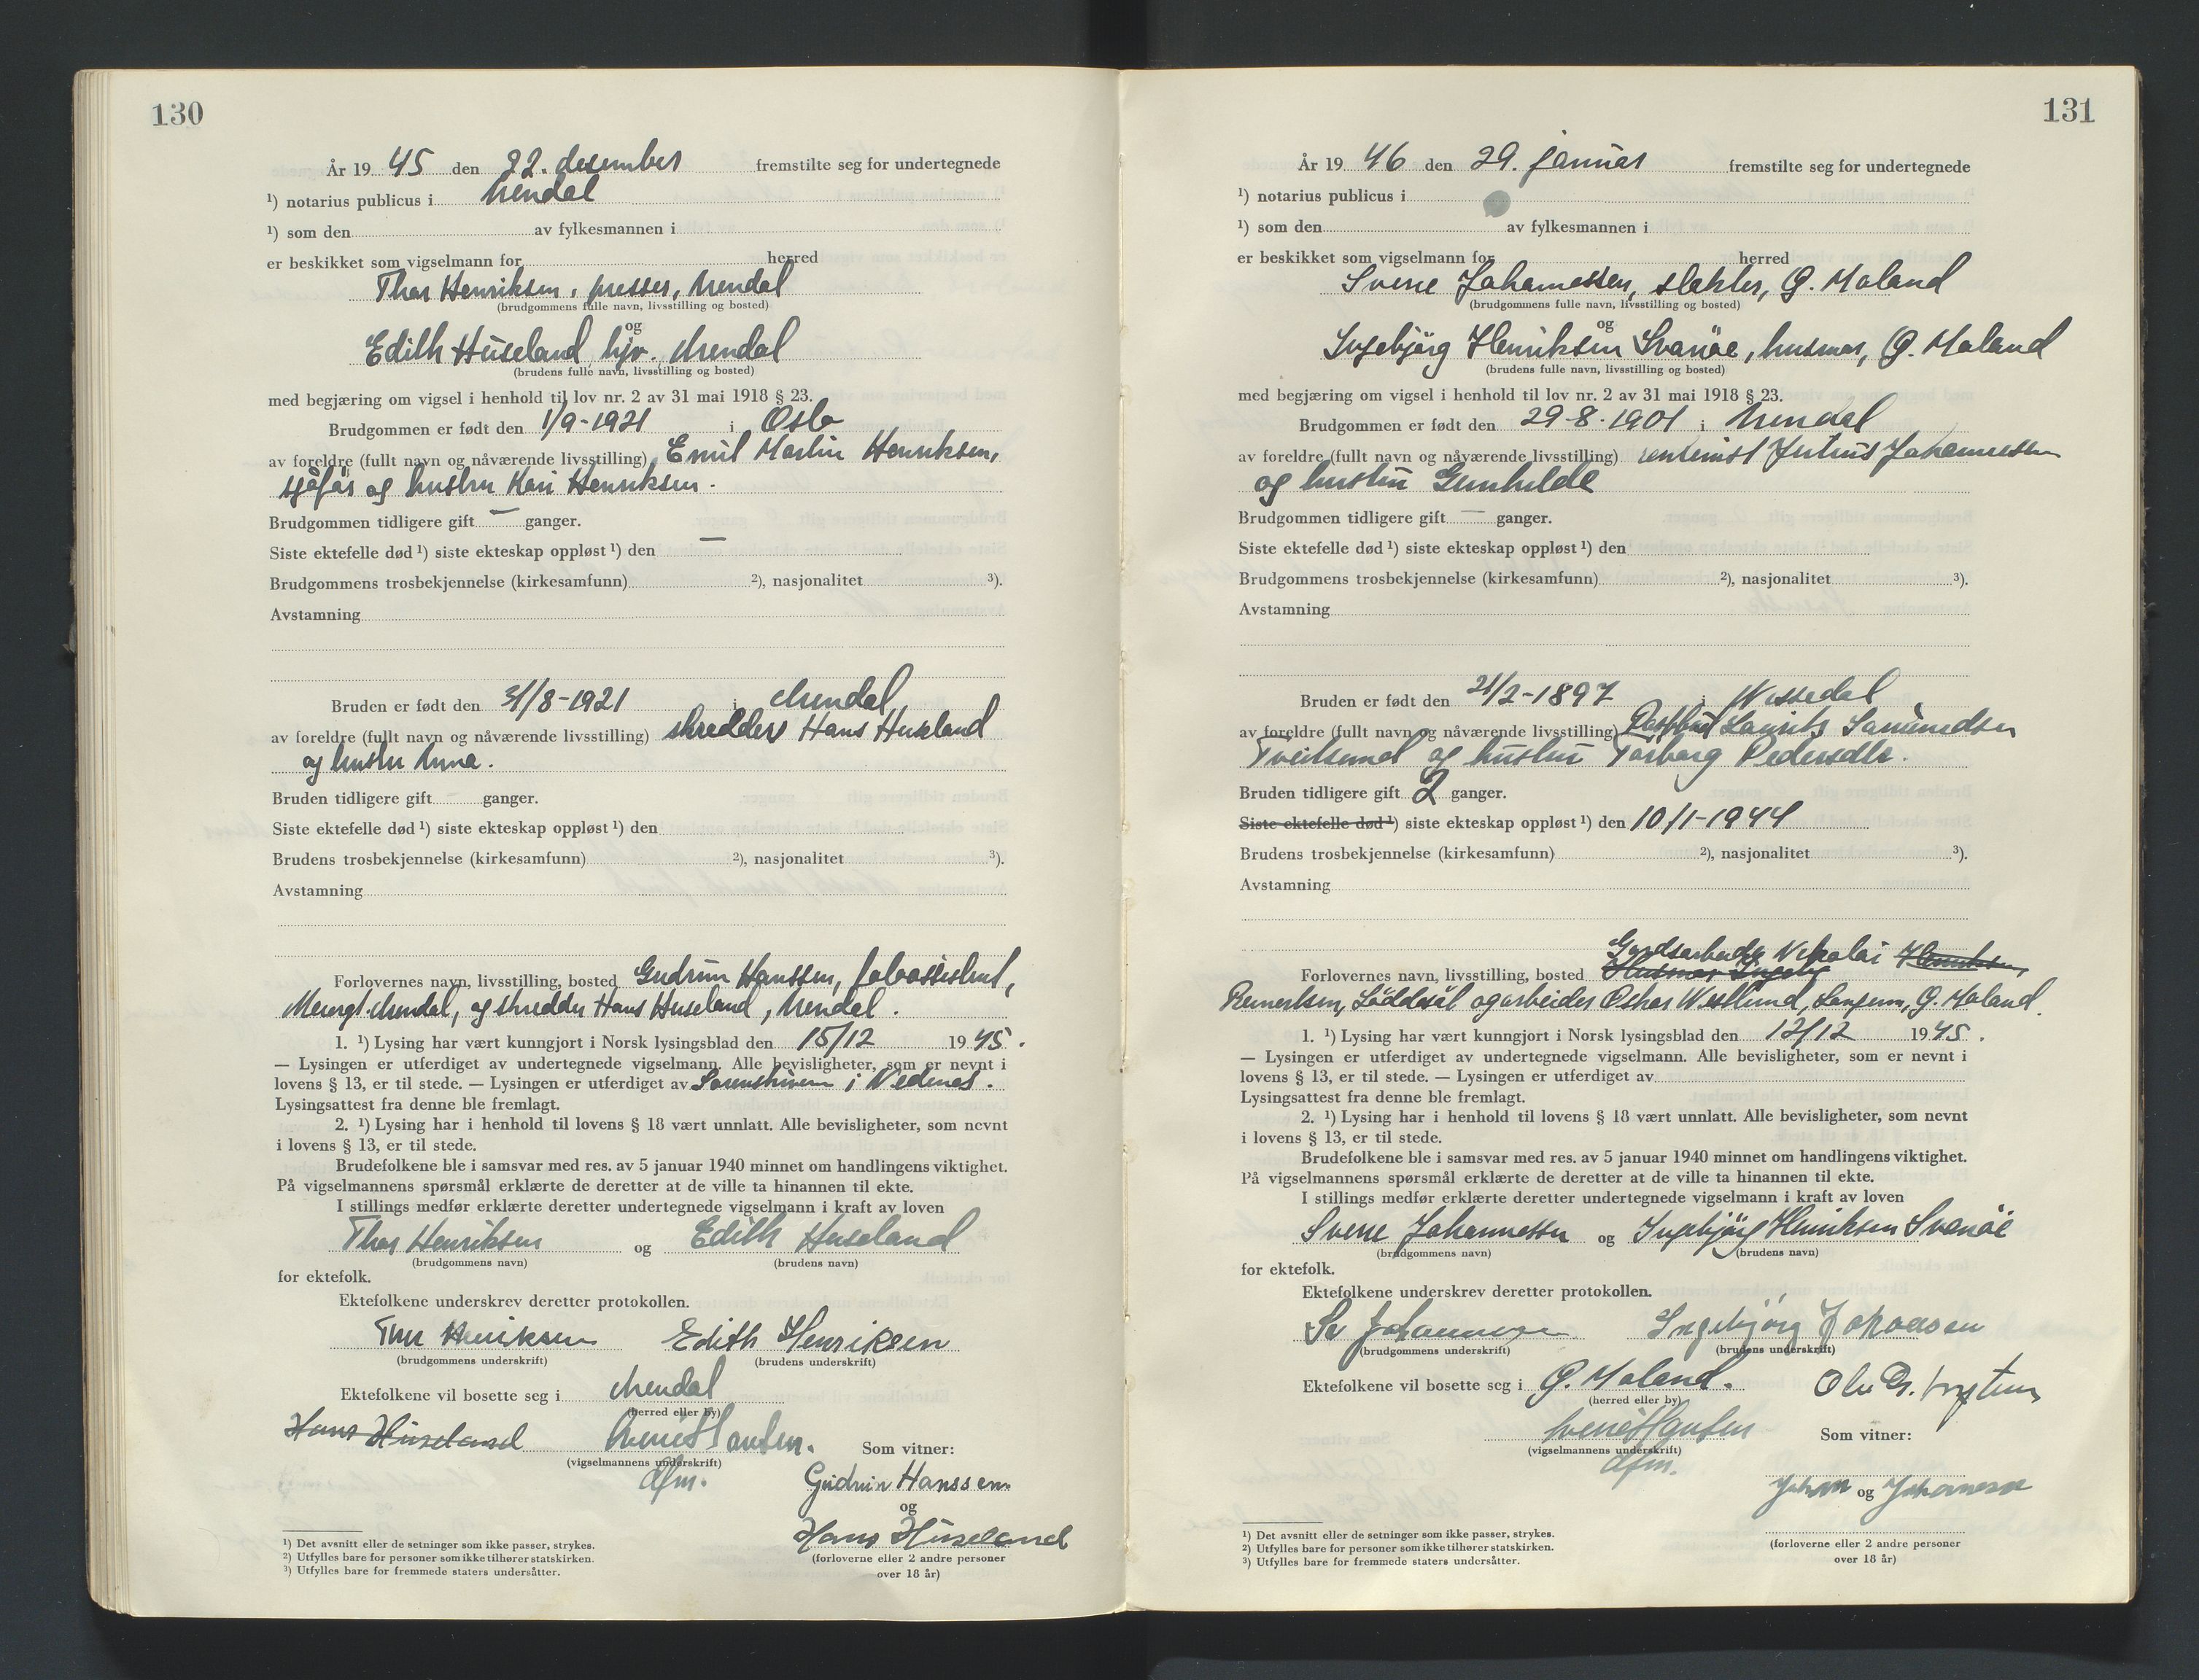 130
År 19 45 den 22. desember fremstilte seg for undertegnede
¹) notarius publicus i Arendal
¹) som den av fylkesmannen i
er beskikket som vigselmann for herred
Thor Henriksen, presser, Arendal
(brudgommens fulle navn, livsstilling og bosted)
og
Edith Huseland hjv. Arendal
(brudens fulle navn, livsstilling og bosted)
med begjæring om vigsel i henhold til lov nr. 2 av 31 mai 1918 § 23.
Brudgommen er født den 1/9-1921 i Oslo
av foreldre (fullt navn og nåværende livsstilling) Emil Martin Henriksen,
sjåfør og hustru Kari Henriksen.
Brudgommen tidligere gift — ganger.
Siste ektefelle død ¹) siste ekteskap oppløst ¹) den —
Brudgommens trosbekjennelse (kirkesamfunn) ²), nasjonalitet ³).
Avstamning
Bruden er født den 31/8-1921 i Arendal
av foreldre (fullt navn og nåværende livsstilling) skredder Hans Huseland
og hustru Anna.
Bruden tidligere gift - ganger.
Siste ektefelle død ¹) siste ekteskap oppløst ¹) den
Brudens trosbekjennelse (kirkesamfunn) ²), nasjonalitet ³).
Avstamning
Forlovernes navn, livsstilling, bosted Gudrun Hanssen,
Arendal, og skredder Hans Huseland, Arendal.
1. ¹) Lysing har vært kunngjort i Norsk lysingsblad den 15/12 19 45.
— Lysingen er utferdiget av undertegnede vigselmann. Alle bevisligheter, som er nevnt i
lovens § 13, er til stede. — Lysingen er utferdiget av Sorenskriveren i Nedenes.
Lysingsattest fra denne ble fremlagt.
2. ¹) Lysing har i henhold til lovens § 18 vært unnlatt. Alle bevisligheter, som nevnt
i lovens § 13, er til stede.
Brudefolkene ble i samsvar med res. av 5 januar 1940 minnet om handlingens viktighet.
På vigselmannens spørsmål erklærte de deretter at de ville ta hinannen til ekte.
I stillings medfør erklærte deretter undertegnede vigselmann i kraft av loven
Thor Henriksen og Edith Huseland
(brudgommens navn) (brudens navn)
for ektefolk.
Ektefolkene underskrev deretter protokollen.
Thor Henriksen Edith Henriksen
(brudgommens underskrift) (brudens underskrift)
Ektefolkene vil bosette seg i Arendal
(herred eller by)
Hans Huseland
(vigselmannens underskrift) Som vitner:
dfm. Gudrun Hanssen
og
Hans Huseland
(forloverne eller 2 andre personer
over 18 år)
¹) Det avsnitt eller de setninger som ikke passer, strykes.
²) Utfylles bare for personer som ikke tilhører statskirken.
³) Utfylles bare for fremmede staters undersåtter.
131
År 19 46 den 29. januar fremstilte seg for undertegnede
¹) notarius publicus i
¹) som den av fylkesmannen i
er beskikket som vigselmann for herred
Sverre Johannessen, slakter, Ø. Moland
(brudgommens fulle navn, livsstilling og bosted)
og
Ingebjörg Henriksen Svanöe, husmor, Ø. Moland
(brudens fulle navn, livsstilling og bosted)
med begjæring om vigsel i henhold til lov nr. 2 av 31 mai 1918 § 23.
Brudgommen er født den 29-8-1901 i Arendal
av foreldre (fullt navn og nåværende livsstilling) Johannessen
og hustru Gunhilde
Brudgommen tidligere gift — ganger.
Siste ektefelle død ¹) siste ekteskap oppløst ¹) den
Brudgommens trosbekjennelse (kirkesamfunn) ²), nasjonalitet ³).
Avstamning
Bruden er født den 21/2-1897 i Nissedal
av foreldre (fullt navn og nåværende livsstilling) Laurits Samundsen
Tveitsund og hustru Torborg Pedersdtr.
Bruden tidligere gift 2 ganger.
Siste ektefelle død ¹) siste ekteskap oppløst ¹) den 10/1-1944
Brudens trosbekjennelse (kirkesamfunn) ²), nasjonalitet ³).
Avstamning
Gardsarbeider Nikolai Henriksen,
Forlovernes navn, livsstilling, bosted Husmor Ingebj
Reinertsen, Löddesöl og arbeider Oskar Westlund, Langum, Ø. Moland.
1. ¹) Lysing har vært kunngjort i Norsk lysingsblad den 12/12 19 45.
— Lysingen er utferdiget av undertegnede vigselmann. Alle bevisligheter, som er nevnt i
lovens § 13, er til stede. — Lysingen er utferdiget av
Lysingsattest fra denne ble fremlagt.
2. ¹) Lysing har i henhold til lovens § 18 vært unnlatt. Alle bevisligheter, som nevnt
i lovens § 13, er til stede.
Brudefolkene ble i samsvar med res. av 5 januar 1940 minnet om handlingens viktighet.
På vigselmannens spørsmål erklærte de deretter at de ville ta hinannen til ekte.
I stillings medfør erklærte deretter undertegnede vigselmann i kraft av loven
Sverre Johannessen og Ingebjörg Henriksen Svanöe
(brudgommens navn) (brudens navn)
for ektefolk.
Ektefolkene underskrev deretter protokollen.
Sv Johannessen Ingebjørg Johansen
(brudgommens underskrift) (brudens underskrift)
Ektefolkene vil bosette seg i Ø. Moland.
(herred eller by)
(vigselmannens underskrift) Som vitner:
dfm.
Johan og Johannesen
(forloverne eller 2 andre personer
over 18 år)
¹) Det avsnitt eller de setninger som ikke passer, strykes.
²) Utfylles bare for personer som ikke tilhører statskirken.
³) Utfylles bare for fremmede staters undersåtter.